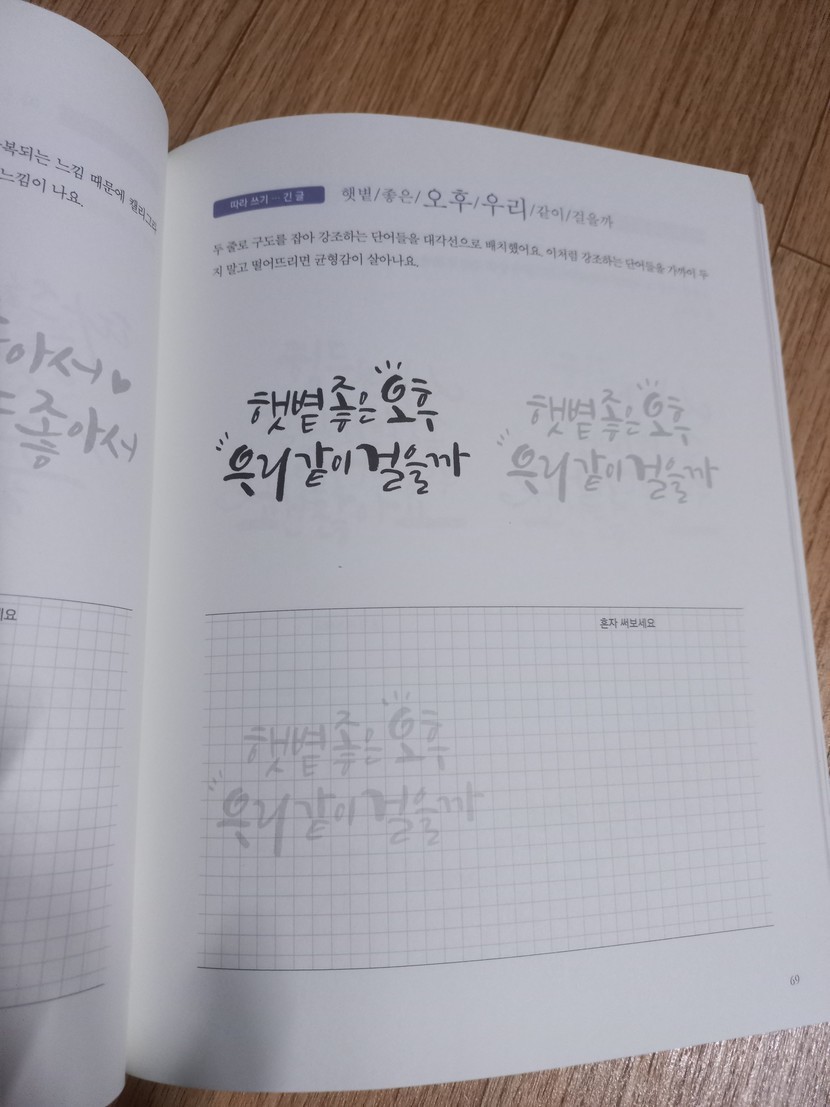 복되는 느낌 때문에 캘리그라
느낌이 나요.
아서♥
좋아서
세요
따라 쓰기 - 긴 글
햇볕/좋은/오후/우리/같이/걸을까
두 줄로 구도를 잡아 강조하는 단어들을 대각선으로 배치했어요. 이처럼 강조하는 단어들을 가까이 두
지 말고 떨어뜨리면 균형감이 살아나요.
햇볕 좋은 오후
우리 같이 걸을까
햇볕 좋은 오후
우리 같이 걸을까
혼자 써보세요
햇볕 좋은 오후
우리 같이 걸을까
69